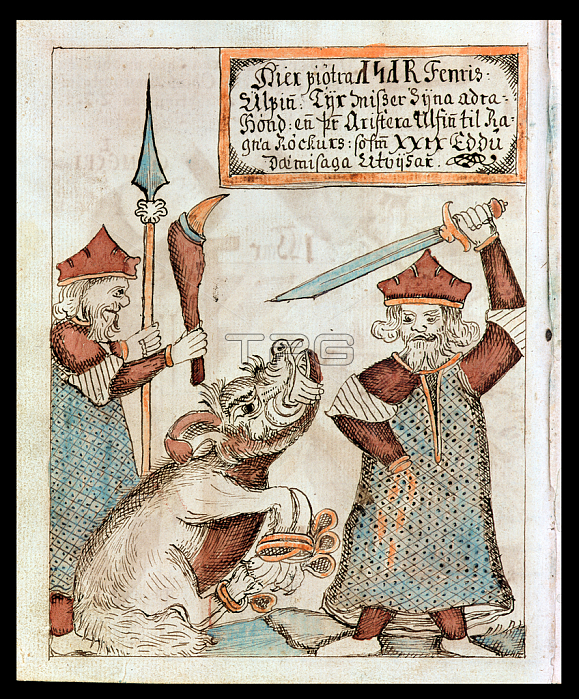 Hier piötra ASAR Fenris-
Ulfin: Tyr Misser Syna adra-
Hönd: en þr Aristera Ulfin til Ra-
gna Röckurs: sofm XXIX Eddu
Dæmisaga Utvijsar.
TPG